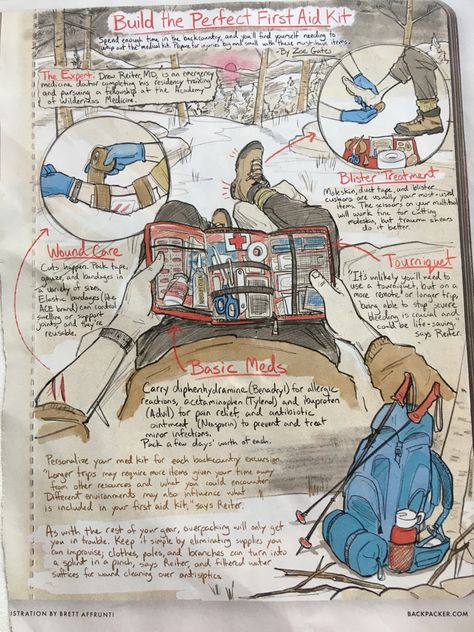 Build the Perfect First Aid Kit
Spend enough time in the backcountry, and you'll find yourself needing to
whip out the medical kit. Prepare for injuries big and small with these must-have items.
-By Zoe Gates
The Expert: Drew Reiter, MD, is an emergency
medicine doctor completing his residency training
and pursuing a fellowship at the Academy
of Wilderness Medicine.
Blister Treatment
Moleskin, duct tape, and blister
cushions are usually your most-used
items. The scissors on your multitool
will work fine for cutting
moleskin, but trauma shears
do it better.
Wound Care
Cuts happen. Pack tape,
gauze, and bandages in
a variety of sizes.
Elastic bandages (like
ACE brand) can control
swelling or support
joints, and they're
reusable.
Tourniquet
"It's unlikely you'll need to
use a tourniquet, but on a
more remote or longer trip,
being able to stop severe
bleeding is crucial and
could be life-saving,"
says Reiter.
Basic Meds
Carry diphenhydramine (Benadryl) for allergic
reactions, acetaminophen (Tylenol) and ibuprofen
(Advil) for pain relief, and antibiotic
ointment (Neosporin) to prevent and treat
minor infections.
Pack a few days' worth of each.
Personalize your med kit for each backcountry excursion.
"Longer trips may require more items given your time away
from other resources and what you could encounter.
Different environments may also influence what
is included in your first aid kit," says Reiter.
As with the rest of your gear, overpacking will only get
you in trouble. Keep it simple by eliminating supplies you
can improvise; clothes, poles, and branches can turn into
a splint in a pinch, says Reiter, and filtered water
suffices for wound cleaning over antiseptics.
USTRATION BY BRETT AFFRUNTI
BACKPACKER.COM